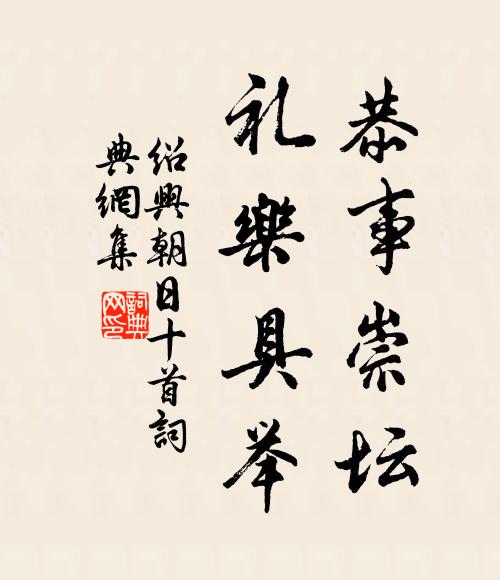 恭事崇坛
礼樂具举
绍興朝日十首詞
典網集
詞典网印